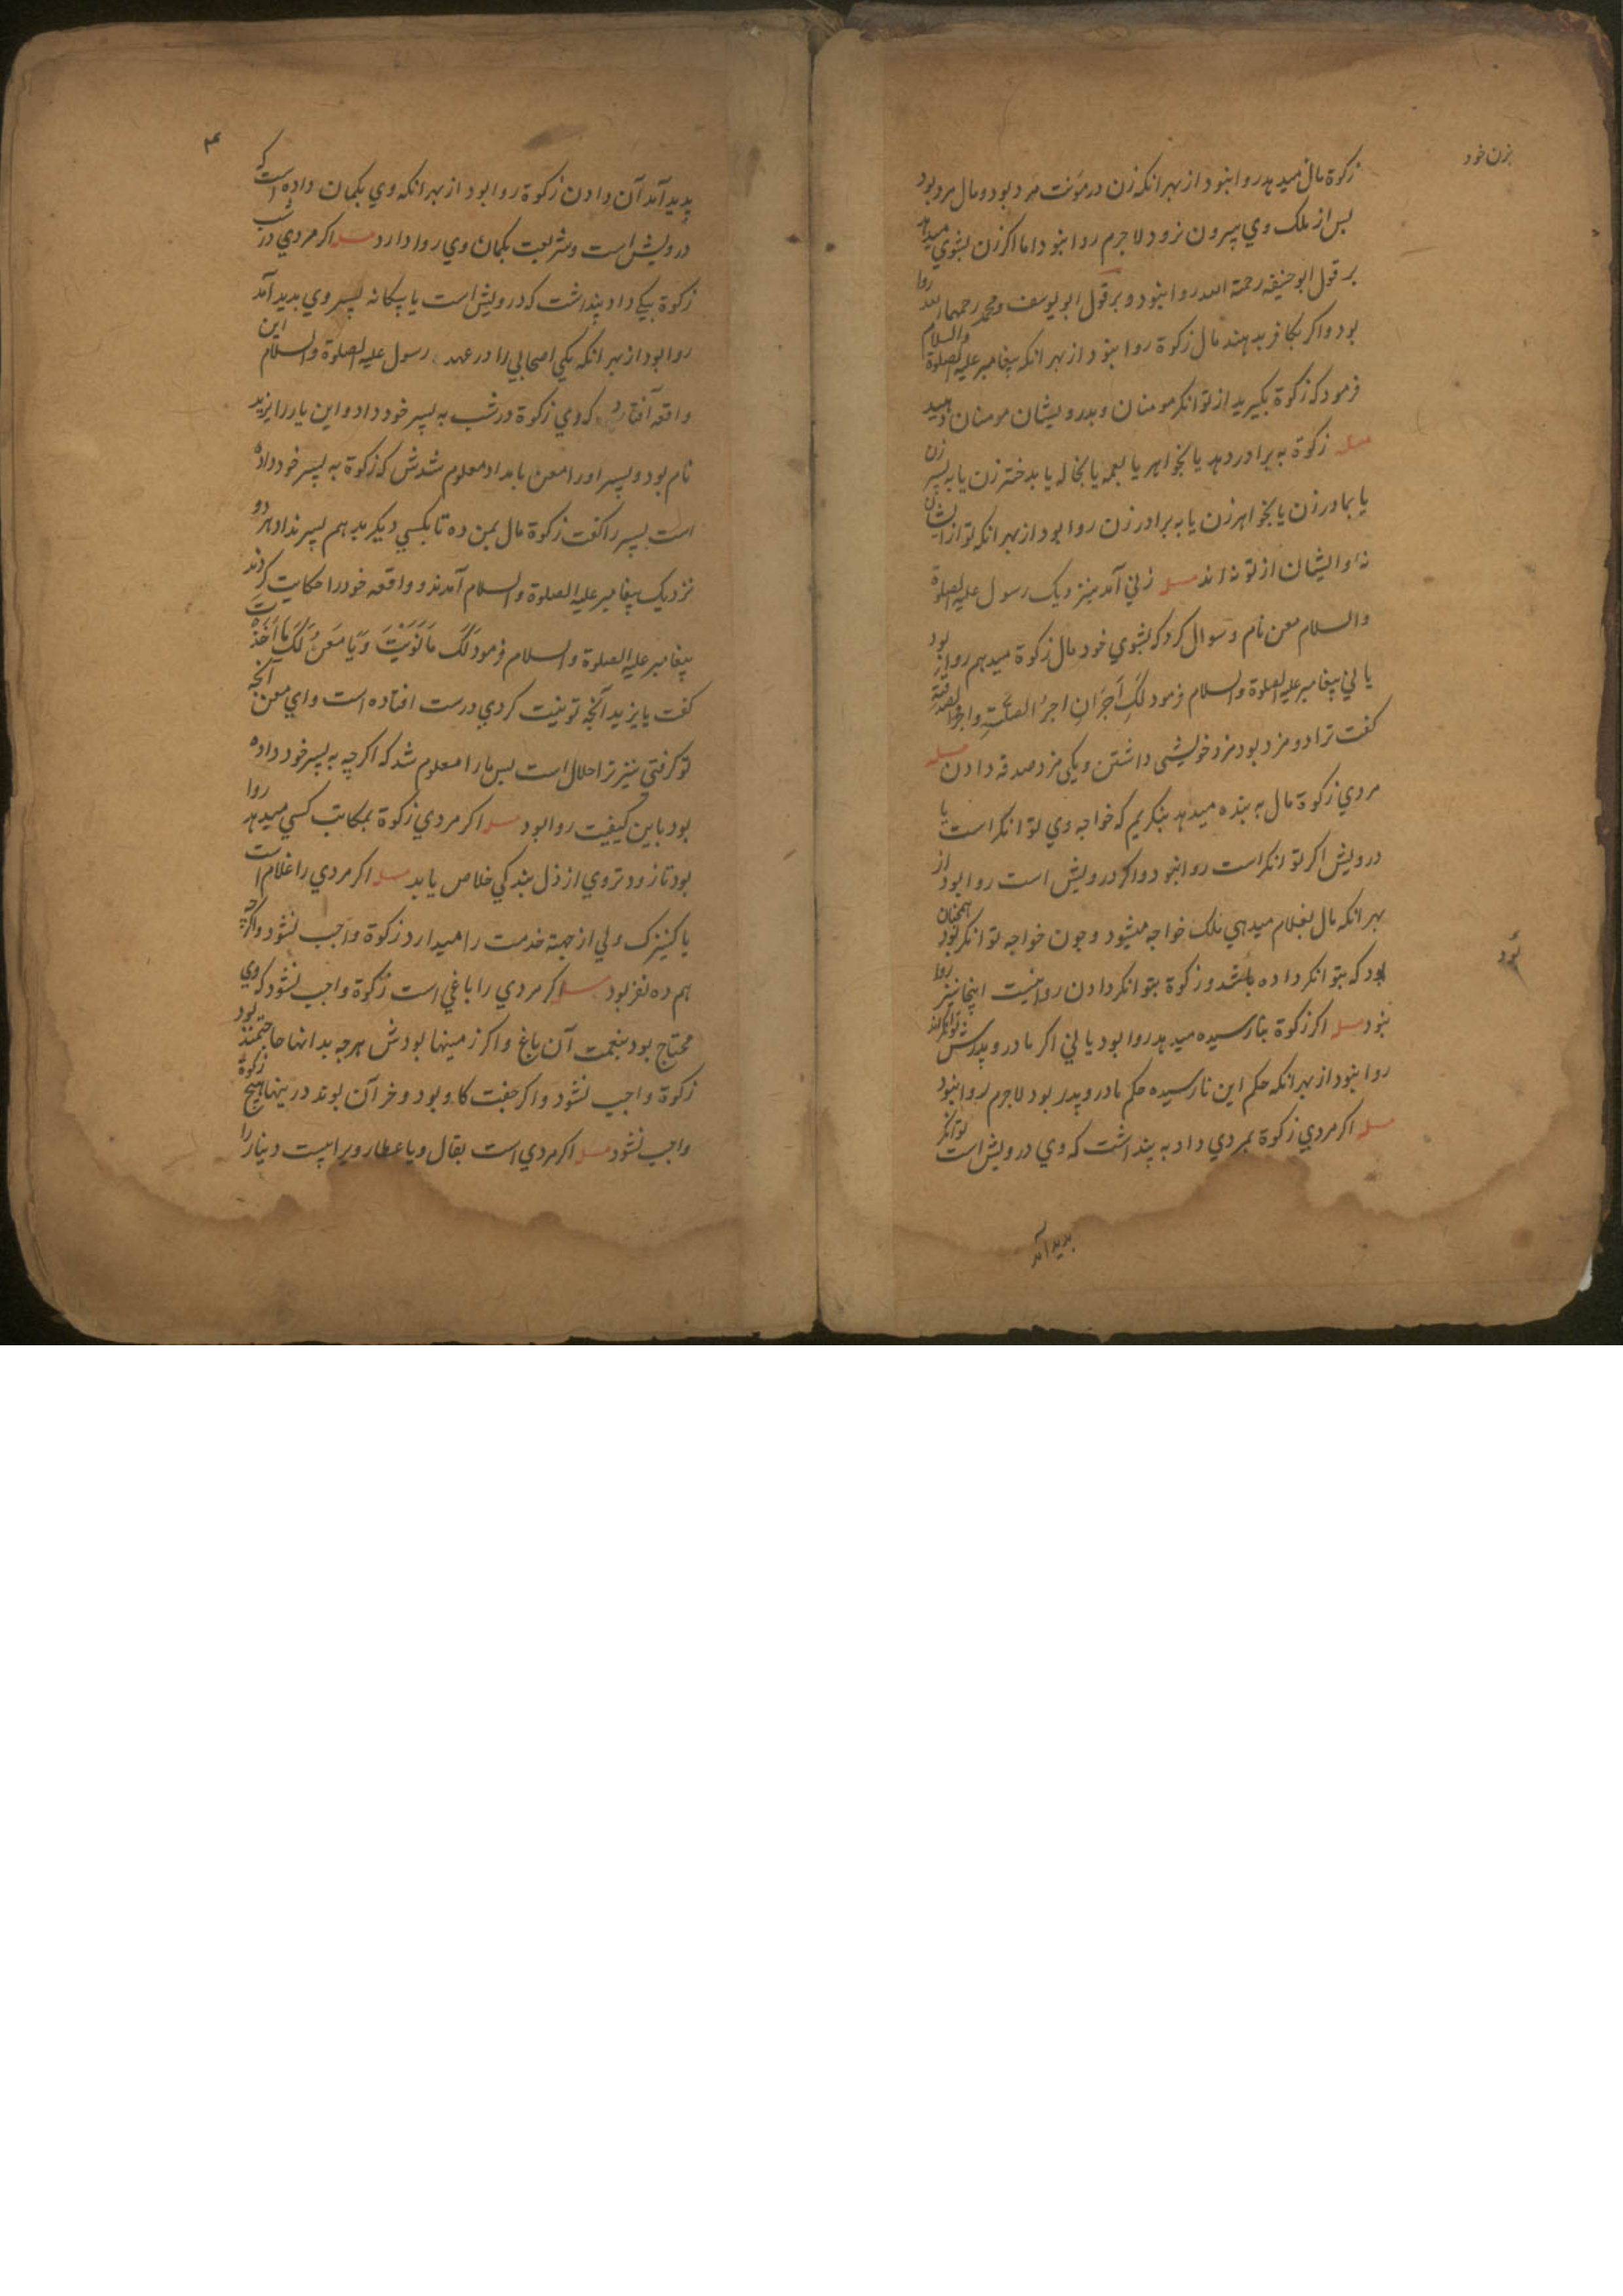 بزن خود
زكوة مال ميدهد روا نبود از بهر انكه زن در مؤنت مرد بود و مال مرد بود
بس از ملك وي بيرون نرود لاجرم روا نبود اما اكر زن بشوي ميدهد
بر قول ابو حنيفه رحمة الله روا نبود و بر قول ابو يوسف و محمد رحمهما الله روا
بود و اكر بكافر بدهند مال زكوة روا نبود از بهر انكه پيغامبر عليه الصلوة والسلام
فرمود كه زكوة بكيريد از توانكر مومنان و بدرويشان مومنان دهيد
مسله زكوة به برادر دهد يا بخواهر يا بعمه يا بخاله يا بدختر زن يا به پسر زن
يا بمادر زن يا بخواهر زن يا به برادر زن روا بود از بهر انكه تو از ايشان
نه و ايشان از تو نه اند مسله زني آمد بنزديك رسول عليه الصلوة
والسلام معن نام و سوال كرد كه بشوي خود مال زكوة ميدهم روا بود
يا ني پيغامبر عليه الصلوة والسلام فرمود لَكِ اَجَرَانِ اجرُ الصلةِ و اجرُ الصدقةِ
كفت ترا دو مزد بود مزد خويشى داشتن و يكى مزد صدقه دادن مسله
مردي زكوة مال به بنده ميدهد بنكريم كه خواجه وي توانكر است يا
درويش اكر توانكر است روا نبود و اكر درويش است روا بود از
بهر انكه مال بغلام ميدهي ملك خواجه ميشود و چون خواجه توانكر بود همچنان
بود كه بتوانكر داده باشد و زكوة بتوانكر دادن روا نيست اينجا نيز روا
بود
نبود مسله اكر زكوة بنا رسيده ميدهد روا بود يا ني اكر مادر و پدرش توانكرند
روا نبود از بهر انكه حكم اين نا رسيده حكم مادر و پدر بود لاجرم روا نبود
مسله اكر مردي زكوة بمردي داد به پنداشت كه وي درويش است توانكر
بديد آمد
پديد آمد آن دادن زكوة روا بود از بهر انكه وي بكمان داده است كه
درويش است و شريعت بكمان وي روا دارد مسله اكر مردي در شب
زكوة بيكي داد پنداشت كه درويش است يا بيكانه پسر وي بديد آمد
روا بود از بهر انكه يكي اصحابي را در عهد رسول عليه الصلوة والسلام اين
واقعه افتاد كه وي زكوة در شب به پسر خود داد و اين يار را يزيد
نام بود و پسر او را معن بامداد معلوم شدش كه زكوة به پسر خود داده
است پسر را كفت زكوة مال بمن ده تا بكسي ديكر بدهم پسر نداد هر دو
نزديك پيغامبر عليه الصلوة والسلام آمدند و واقعه خود را حكايت كردند
پيغامبر عليه الصلوة والسلام فرمود لَكَ مَا نَوَيْتَ وَ يَا مَعنُ لَكَ مَا اَخَذْتَ
كفت يا يزيد آنچه تو نيت كردي درست افتاده است و اي معن آنچه
تو كرفتي نيز ترا حلال است بس ما را معلوم شد كه اكر چه به پسر خود داده
بود باين كيفيت روا بود مسله اكر مردي زكوة بمكاتب كسي ميدهد روا
بود تا زودتر وي از ذل بندكي خلاص يابد مسله اكر مردي را غلام است
يا كنيزك ولي از جهة خدمت را ميدارد زكوة واجب نشود و اكرچه
هم ده نفر بود مسله اكر مردي را باغي است زكوة واجب نشود كه وي
محتاج بود بنعمت آن باغ و اكر زمينها بودش هرچه بدانها حاجتمند بود
زكوة واجب نشود و اكر جفت كاو بود و خر آن بوند درينها هيچ زكوة
واجب نشود مسله اكر مردي است بقال و يا عطار ويرا بيست دينار را